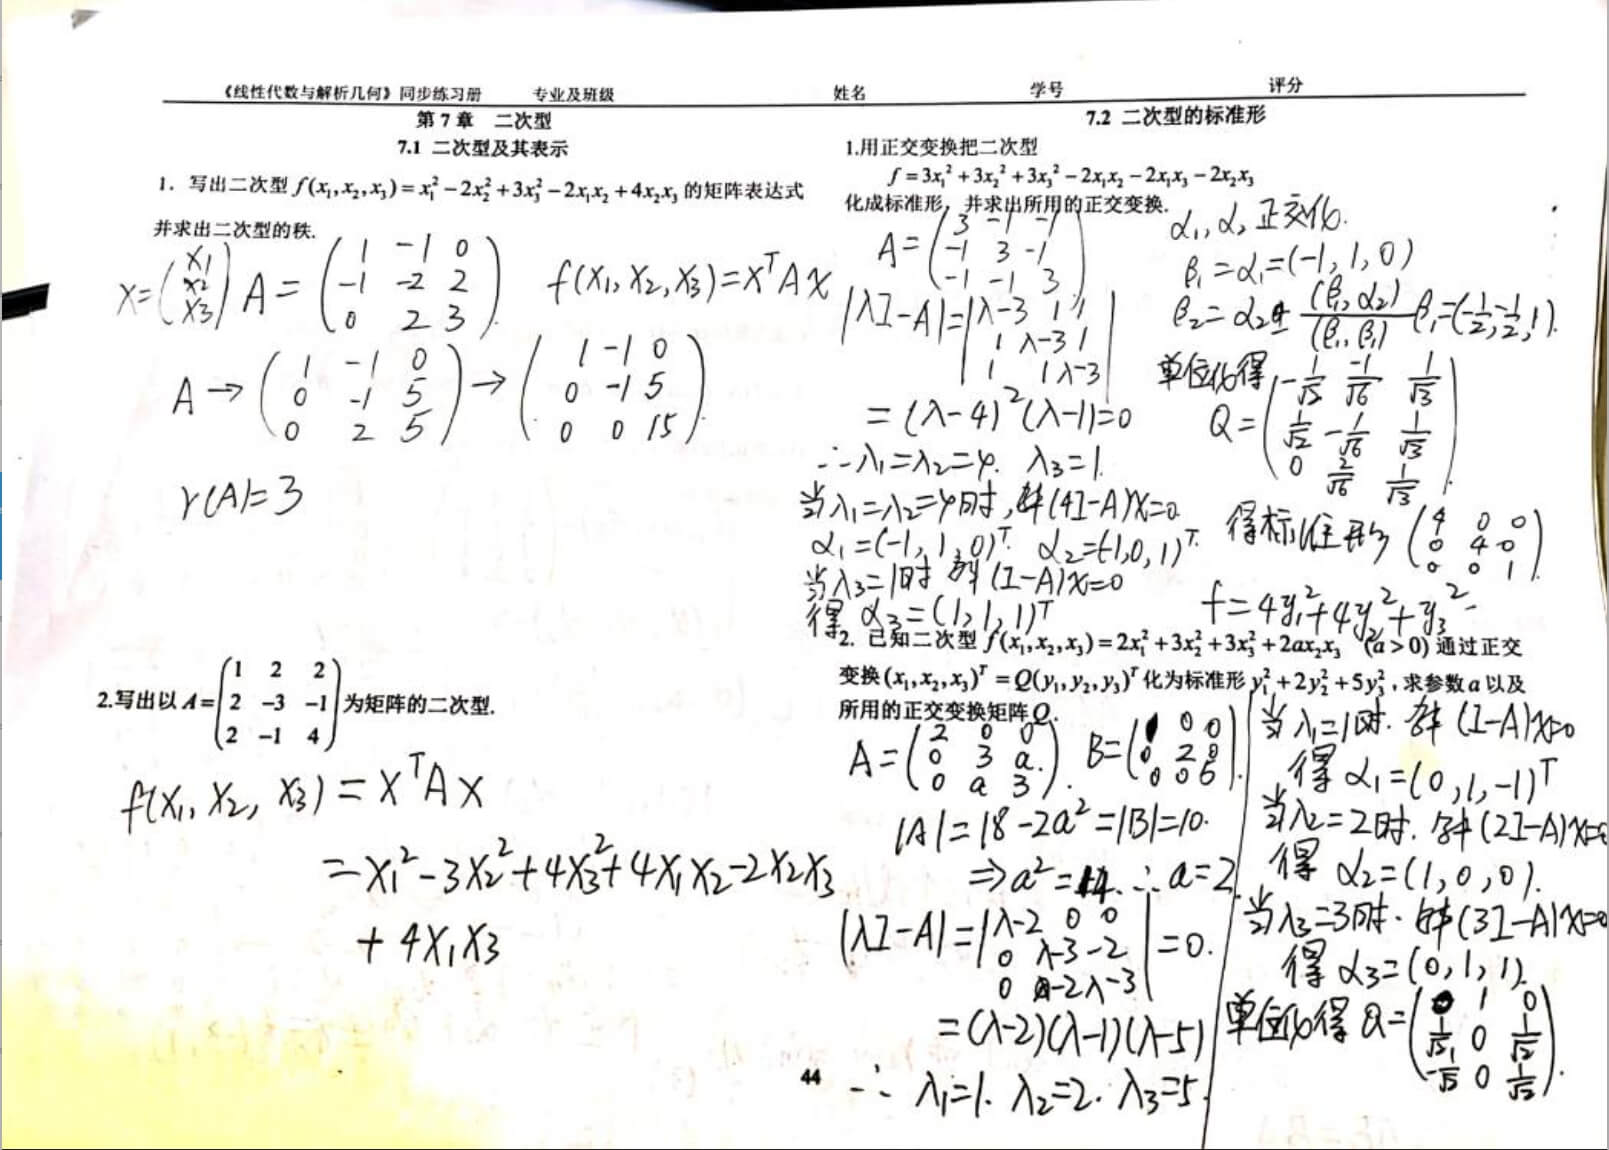 《线性代数与解析几何》同步练习册 专业及班级 姓名 学号 评分
第 7 章 二次型
7.1 二次型及其表示
1. 写出二次型 f(x₁,x₂,x₃)=x₁²−2x₂²+3x₃²−2x₁x₂+4x₂x₃ 的矩阵表达式
并求出二次型的秩.
X=(x1 x2 x3) A=(1 -1 0
-1 -2 2
0 2 3). f(x₁, x₂, x₃)=XᵀAX
A→(1 -1 0
0 -1 5
0 2 5)→(1 -1 0
0 -1 5
0 0 15).
r(A)=3
2.写出以 A=(1 2 2
2 −3 −1
2 −1 4) 为矩阵的二次型.
f(x₁, x₂, x₃)=XᵀAX
=x₁²-3x₂²+4x₃²+4x₁x₂-2x₂x₃
+4x₁x₃
7.2 二次型的标准形
1.用正交变换把二次型
f=3x₁²+3x₂²+3x₃²−2x₁x₂−2x₁x₃−2x₂x₃
化成标准形，并求出所用的正交变换.
A=(3 -1 -1
-1 3 -1
-1 -1 3)
|λI-A|=|λ-3 1 1
1 λ-3 1
1 1 λ-3|
=(λ-4)²(λ-1)=0
∴λ₁=λ₂=4. λ₃=1.
当λ₁=λ₂=4时,解(4I-A)X=0
α₁=(-1,1,0)ᵀ. α₂=(-1,0,1)ᵀ.
当λ₃=1时 解(I-A)X=0
得 α₃=(1,1,1)ᵀ
α₁,α₂正交化.
β₁=α₁=(-1,1,0)
β₂=α₂ (β₁,α₂)/(β₁,β₁) β₁=(-1/2,-1/2,1).
单位化得
Q=(-1/√2 -1/√6 1/√3
1/√2 -1/√6 1/√3
0 2/√6 1/√3)
得标准形(4 0 0
0 4 0
0 0 1).
f=4y₁²+4y₂²+y₃².
2. 已知二次型 f(x₁,x₂,x₃)=2x₁²+3x₂²+3x₃²+2ax₂x₃ (a>0) 通过正交
变换(x₁,x₂,x₃)ᵀ=Q(y₁,y₂,y₃)ᵀ化为标准形 y₁²+2y₂²+5y₃²,求参数a以及
所用的正交变换矩阵Q.
A=(2 0 0
0 3 a
0 a 3). B=(1 0 0
0 2 0
0 0 5).
|A|=18-2a²=|B|=10.
⇒a²=4.∴a=2.
|λI-A|=|λ-2 0 0
0 λ-3 -2
0 -2 λ-3|=0.
=(λ-2)(λ-1)(λ-5)
∴ λ₁=1. λ₂=2. λ₃=5.
当λ₁=1时.解(I-A)X=0
得 α₁=(0,1,-1)ᵀ
当λ₂=2时.解(2I-A)X=0
得 α₂=(1,0,0).
当λ₃=3时.解(3I-A)X=0
得 α₃=(0,1,1).
单位化得 Q=(0 1 0
1/√2 0 1/√2
-1/√2 0 1/√2).
44